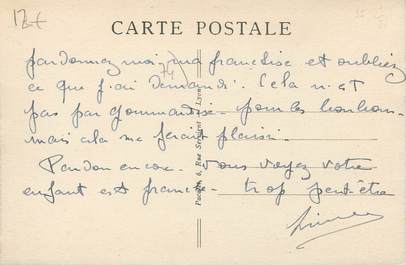 12€
CARTE POSTALE
pardonnez moi ma franchise et oubliez
74
ce que j'ai demandé. Cela n'est
pas par gourmandise - pour les bonbons -
mais cela me ferait plaisir.
Pardon encore. Vous voyez votre
enfant est franche - trop peut-être
6, Rue Lyon